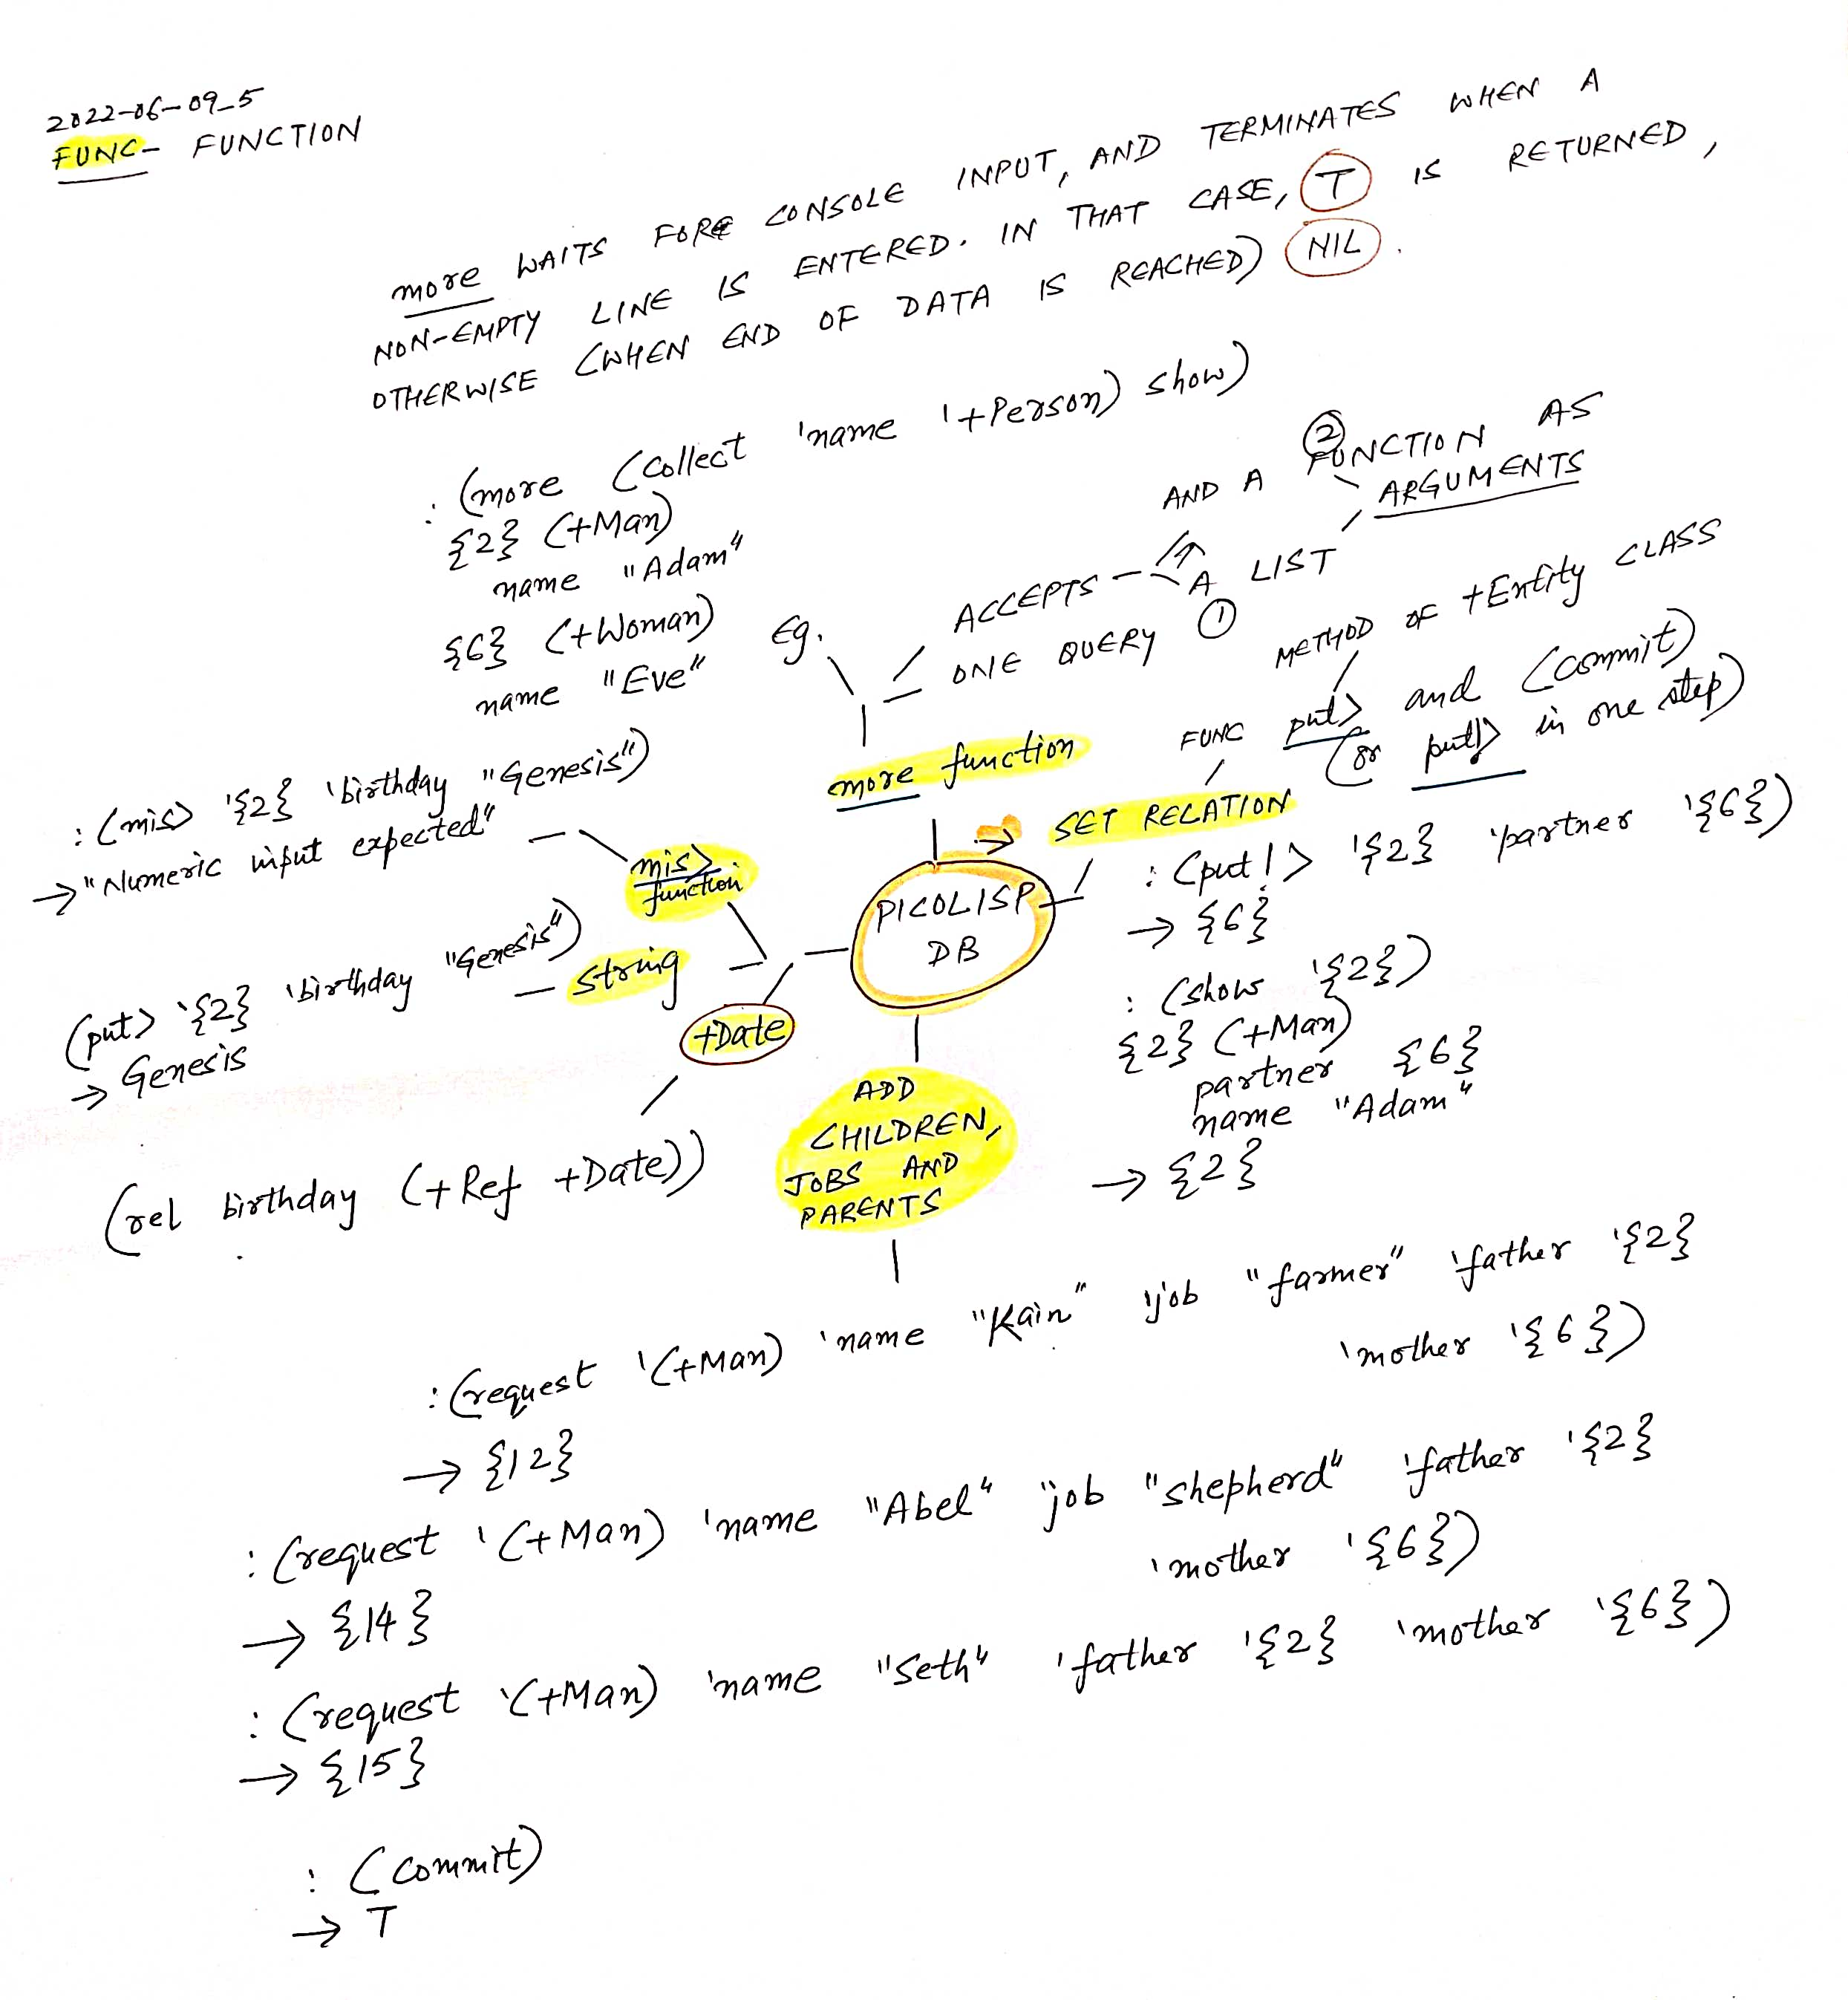 2022-06-09_5
FUNC- FUNCTION
more WAITS FORE CONSOLE INPUT, AND TERMINATES WHEN A
NON-EMPTY LINE IS ENTERED. IN THAT CASE, T IS RETURNED,
OTHERWISE (WHEN END OF DATA IS REACHED) NIL.
: (more (collect 'name '+Person) show)
{2} (+Man)
name "Adam"
{6} (+Woman)
name "Eve"
Eg.
AND A ② FUNCTION AS
ARGUMENTS
ACCEPTS - A LIST
ONE QUERY ①
more function
METHOD OF +Entity CLASS
FUNC put> and (commit)
(or put!> in one step)
→ SET RELATION
: (put!> '{2} 'partner '{6})
→ {6}
: (show '{2})
{2} (+Man)
partner {6}
name "Adam"
→ {2}
: (mis> '{2} 'birthday "Genesis")
→ "Numeric input expected"
mis>
function
PICOLISP
DB
(put> '{2} 'birthday "Genesis") - string
→ Genesis
+Date
(rel birthday (+Ref +Date))
ADD
CHILDREN,
JOBS AND
PARENTS
: (request '(+Man) 'name "Kain" 'job "farmer" 'father '{2}
'mother '{6})
→ {12}
: (request '(+Man) 'name "Abel" 'job "shepherd" 'father '{2}
'mother '{6})
→ {14}
: (request '(+Man) 'name "Seth" 'father '{2} 'mother '{6})
→ {15}
: (commit)
→ T